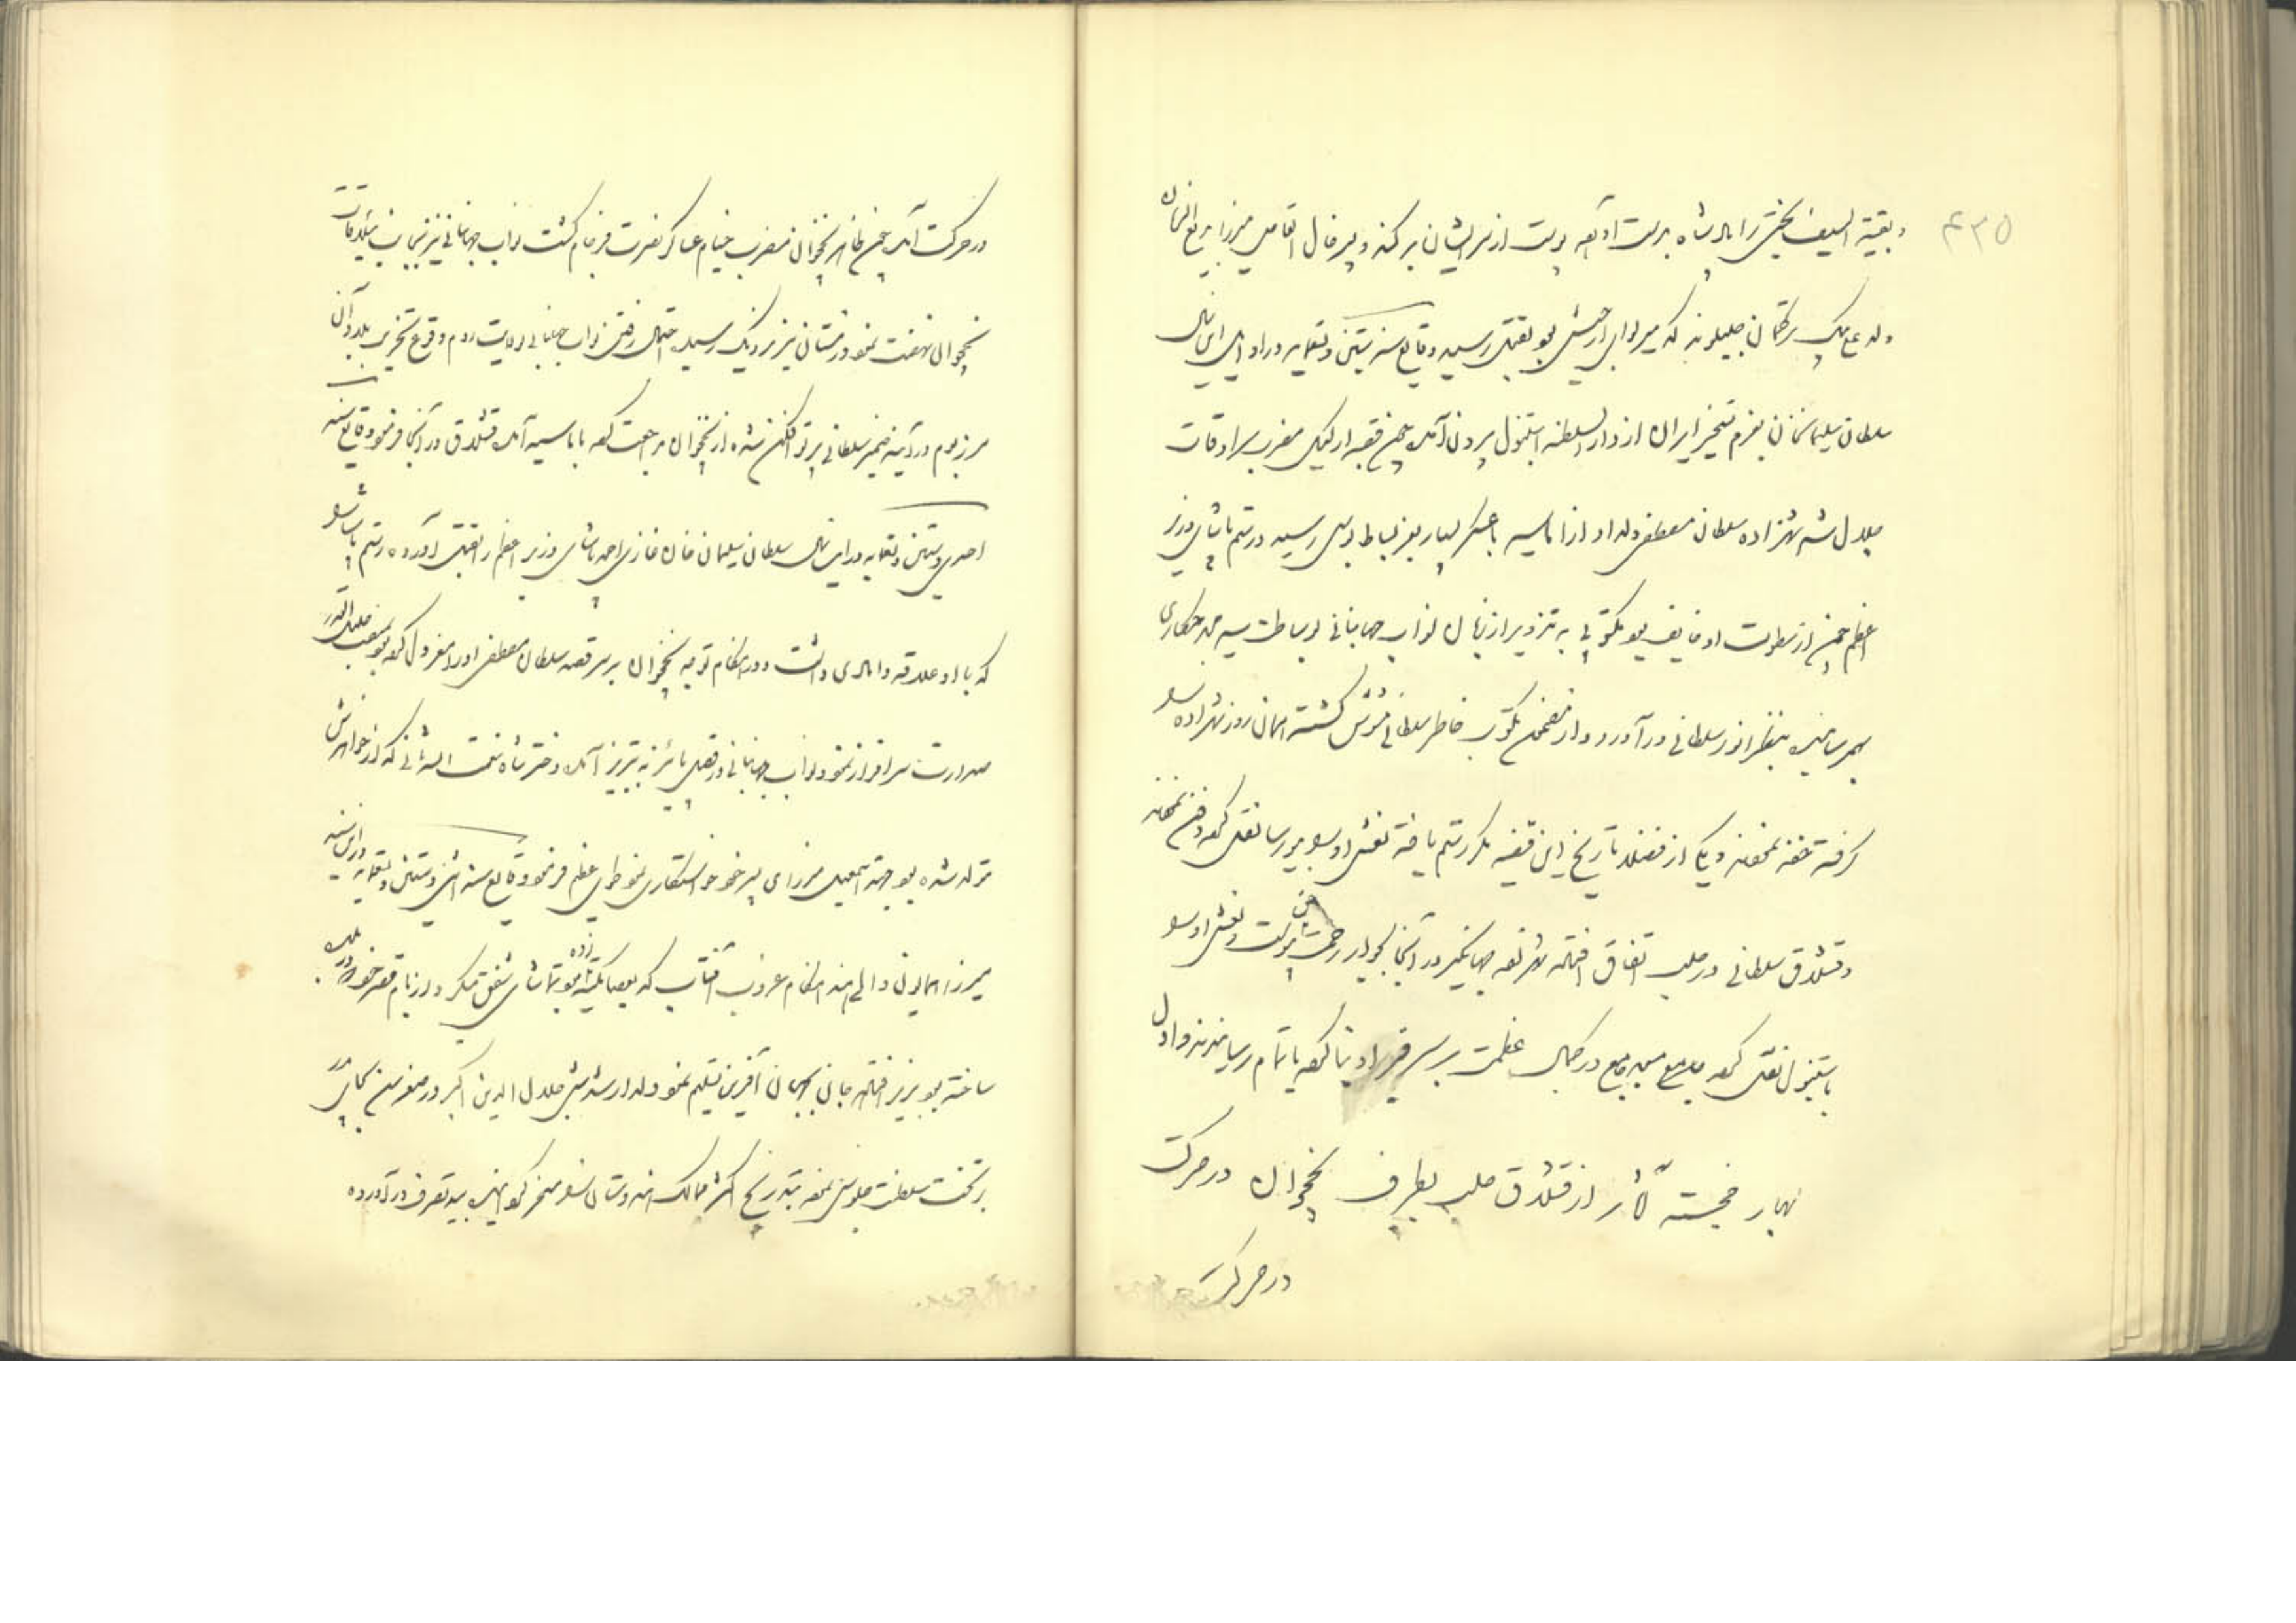 ۴۳۵
و بقیة السیف بخشی را امر شاه بدست آورده پوست از سر ایشان برکند و میرفاضل القاص میرزا بدیع الزمان
ولد علی بیک ترکمان جلیلوند که میرلوای ارجیش بود بقتل رسید وقایع سنه ستین و تسعمایه در اوایل این سال
سلطان سلیمانخان بعزم تسخیر ایران از دار السلطنه استنبول بیرون آمده چمن قصبه ارکیلی مضرب سرادقات
جلال شد شهزاده سلطان مصطفی ولد او از اماسیه با عسکر بسیار بعز بساط بوسی رسید و رستم پاشای وزیر
اعظم چون از سطوت او خایف بود مکتوبی به تزویر از زبان نواب جهانبانی بوساطت سید محمد حکاری
بهم رسانیده بنظر انور سلطانی در آورد و از مضمون مکتوب خاطر سلطانی مشوش گشته همان روز شهزاده را
گرفته خفه نمودند و یکی از فضلا تاریخ این قضیه مکر رستم یافته نعش او را ببورسا نقل کرده دفن نمودند
و قشلاق سلطانی در حلب اتفاق افتاده شهزاده جهانگیر در آنجا بجوار رحمت حق پیوست و نعش او را
باستنبول نقل کرده جامع در کمال عظمت بر سر قبر او بنا کرده باتمام رسانیدند و اول
بهار خجسته آثار از قشلاق حلب بطرف نخجوان در حرکت
در حرکت
در حرکت آمده چمن ظاهر نخجوان مضرب خیام عساکر نصرت فرجام گشت نواب جهانبانی نیز بجانب ییلاقات
نخجوان نهضت نمود و زمستان نیز نزدیک رسید احتمال رفتن نواب جهانبانی بولایت روم و وقوع تخریب بلاد آن
مرز بوم در آینه ضمیر سلطانی پرتو افکن شده از نخجوان مراجعت کرده باماسیه آمده قشلاق در آنجا فرمود وقایع سنه
احدی و ستین و تسعمایه در این سال سلطان سلیمان خان غازی احمد پاشای وزیر اعظم را بقتل آورده رستم پاشا را
که با او علاقه دامادی داشت و در هنگام توجه نخجوان بر سر قصه سلطان مصطفی او را معزول کرده بود بمنصب جلیل القدر
صدارت سرافراز نمود و نواب جهانبانی در فصل پائیز به تبریز آمده دختر شاه نعمت الله ثانی که از خواهرش
متولد شده بود بجهت اسمعیل میرزای پسر خود خواستگاری نمود طوی عظیم فرمود وقایع سنه اثنی و ستین و تسعمایه در این سنه
میرزا همایون والی هند هنگام غروب آفتاب که بعصا تکیه زده بود تماشای شفق میکرد و از بام قصر خود که در دهلی
ساخته بود بزیر افتاده جان بجهان آفرین تسلیم نمود ولد ارشدش جلال الدین اکبر در صغر سن بجای پدر
بر تخت سلطنت جلوس نموده بتدریج اکثر ممالک هندوستان را مسخر گردانیده بید تصرف در آورده